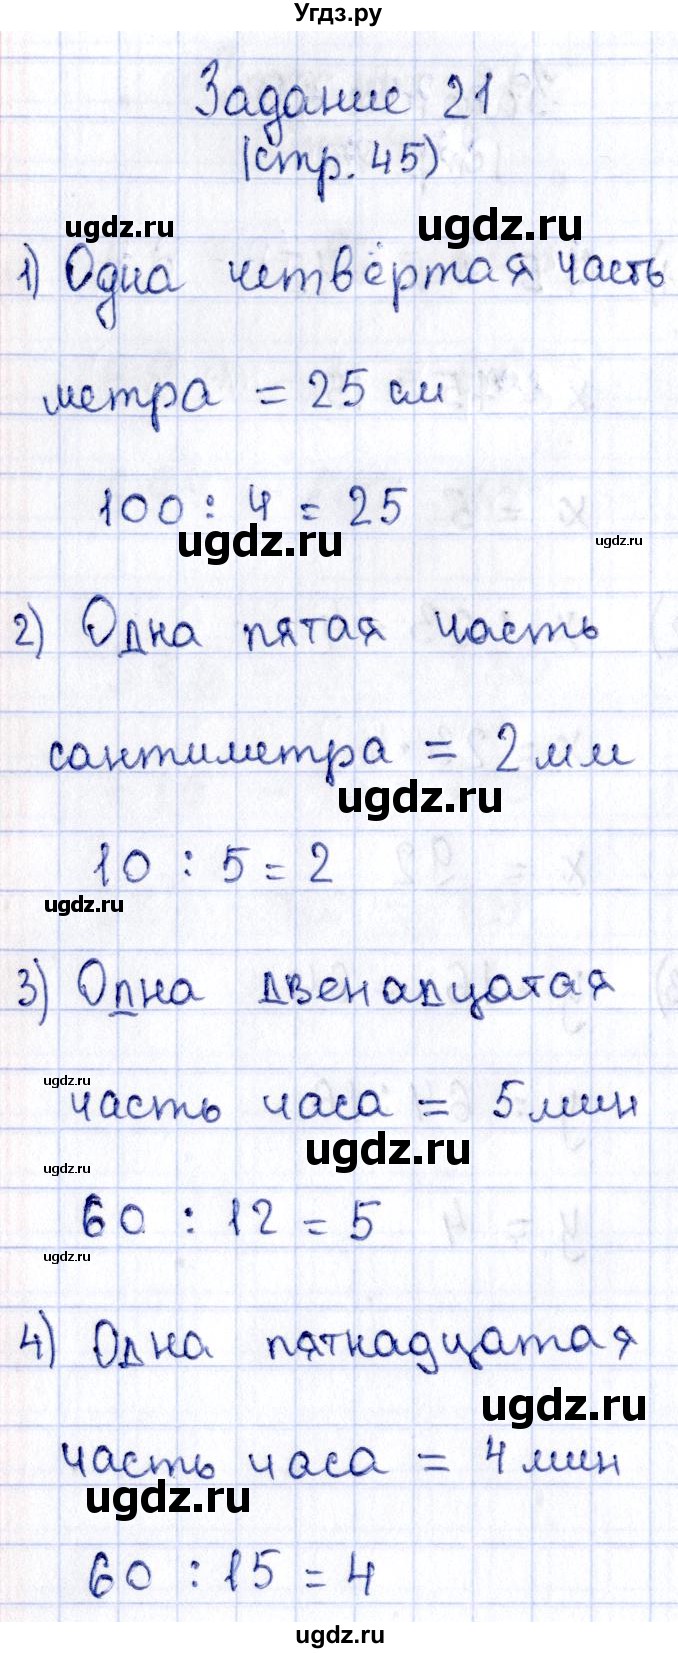 Угдз.ру
Задание 21
(стр. 45)
ugdz.ru ugdz.ru
1) Одна четвёртая часть
метра = 25 см
100 : 4 = 25
ugdz.ru ugdz.ru
2) Одна пятая часть
сантиметра = 2 мм
ugdz.ru
10 : 5 = 2
ugdz.ru
3) Одна двенадцатая
ugdz.ru
часть часа = 5 мин
ugdz.ru
ugdz.ru
60 : 12 = 5
ugdz.ru
4) Одна пятнадцатая
ugdz.ru
часть часа = 4 мин
ugdz.ru
60 : 15 = 4
ugdz.ru